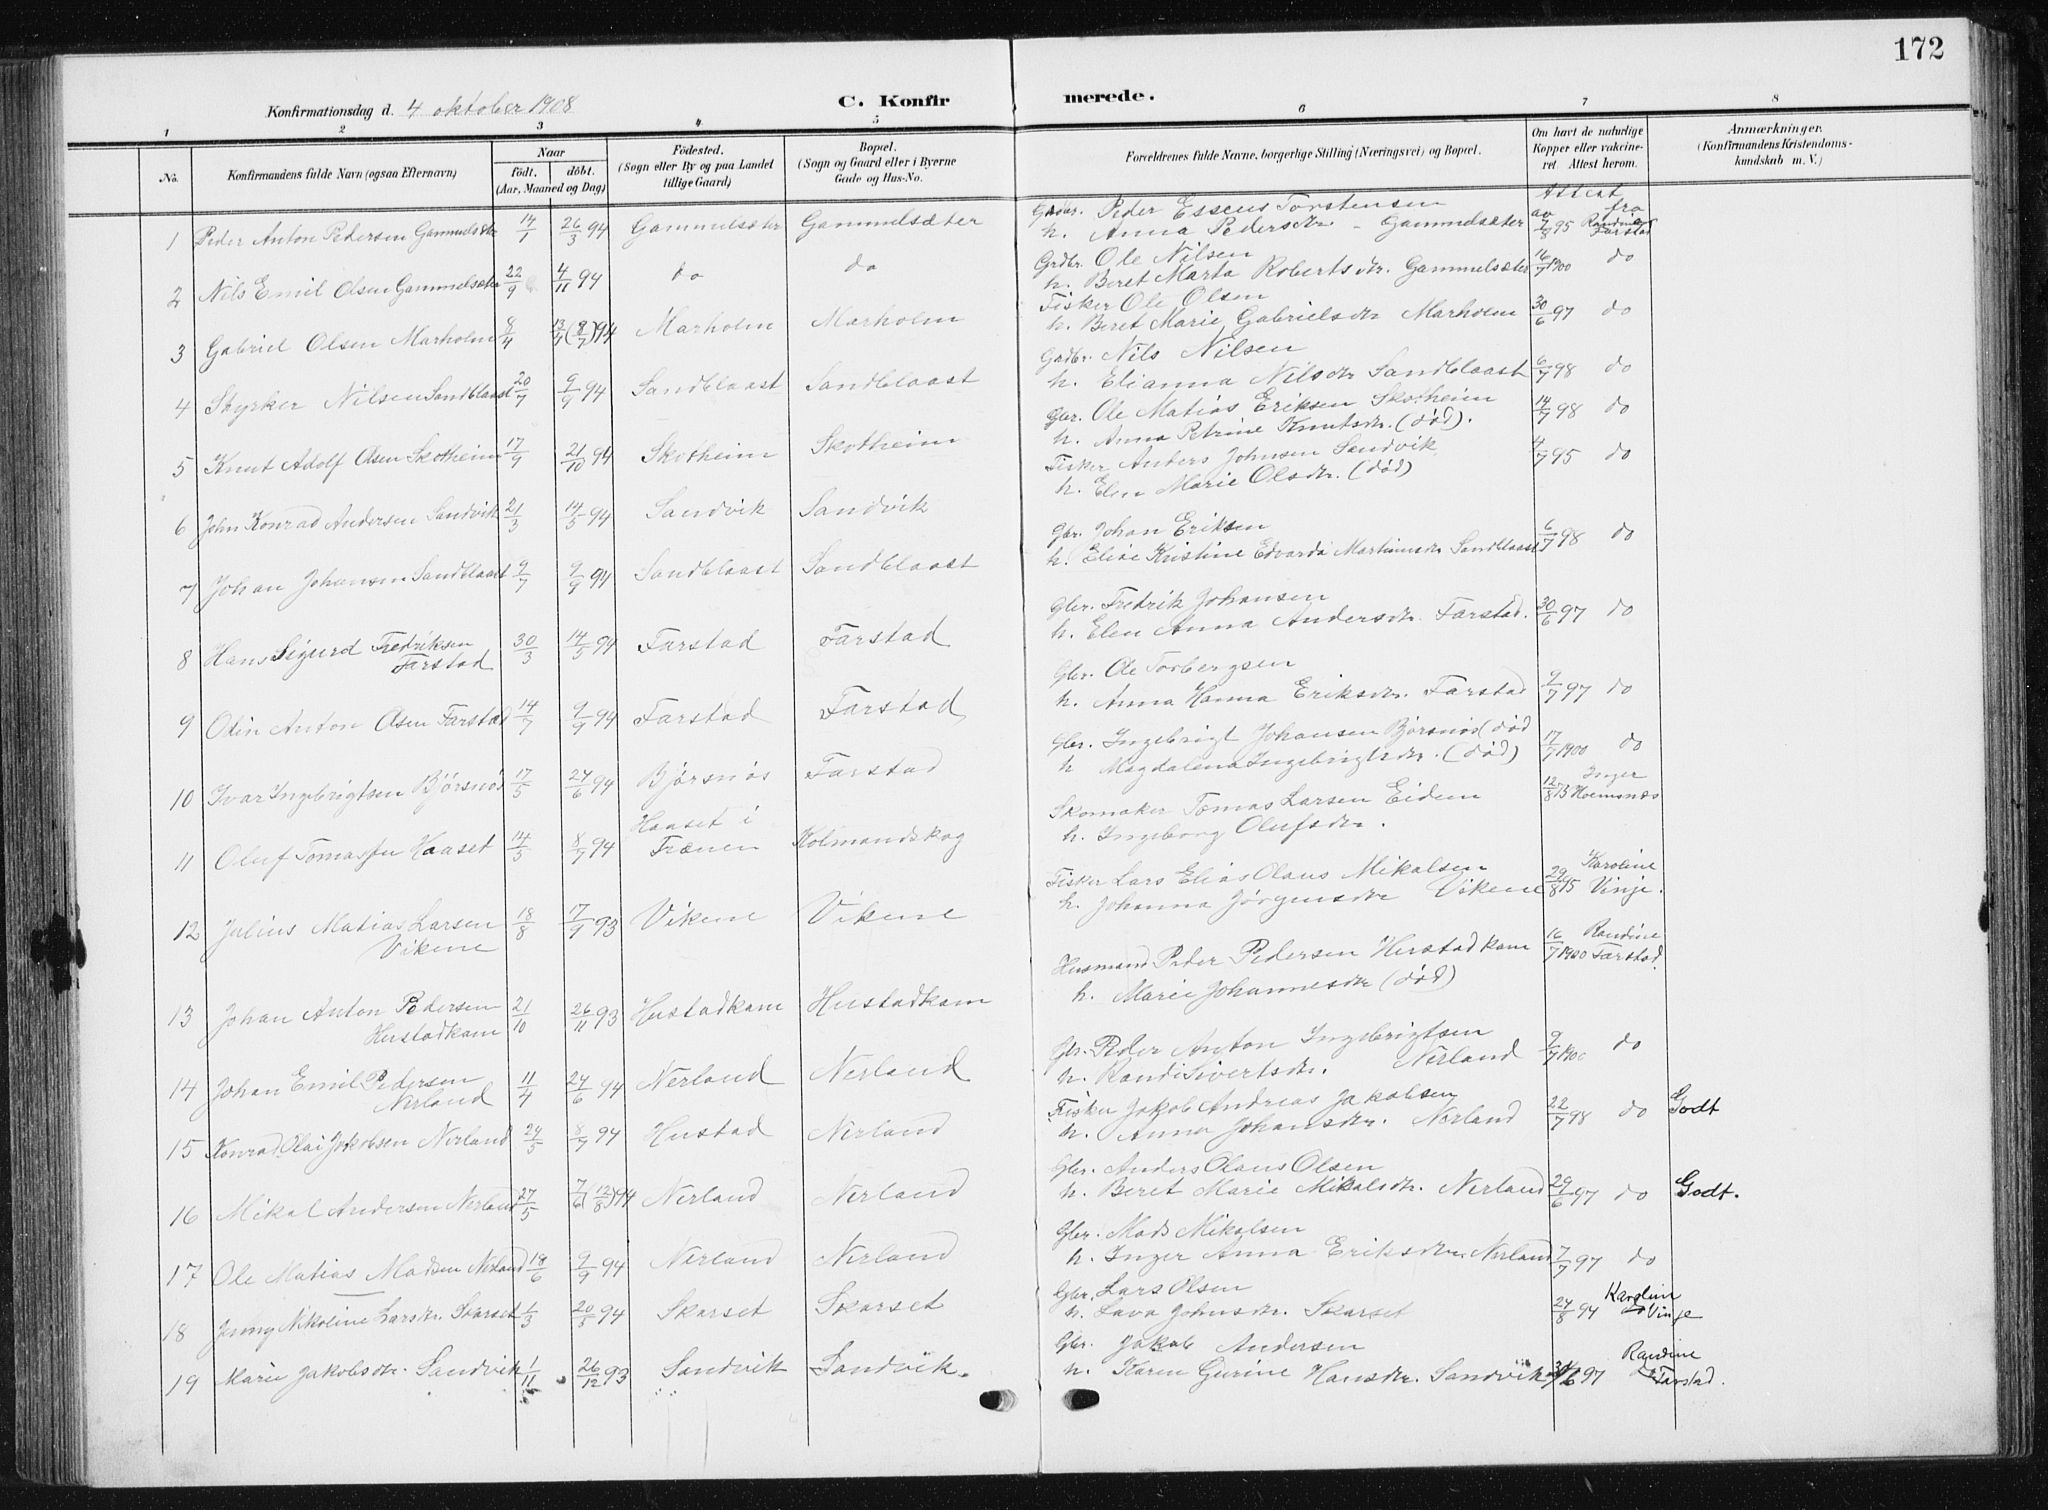 172
Konfirmationsdag d. 4 oktober 1908
C. Konfir merede.
1 2 3 4 5 6 7 8
No.
Konfirmandens fulde Navn (ogsaa Efternavn)
Naar
födt. döbt.
(Aar, Maaned og Dag)
Födested.
(Sogn eller By og paa Landet
tillige Gaard)
Bopæl.
(Sogn og Gaard eller i Byerne
Gade og Hus-No.
Forældrenes fulde Navne, borgerlige Stilling (Næringsvei) og Bopæl.
Om havt de naturlige
Kopper eller vakcine-
ret Attest herom.
Anmærkninger.
(Konfirmandens Kristendoms-
kundskab m. V.)
Attest
av fra
1 Peder Anton Pedersen Gammelsæter 14/1 26/3 94 Gammelsæter Gammelsæter Grdbr. Peder Esseus Torstensen
h. Anna Pedersdtr - Gammelsæter 7/8 95 Randine Farstad
2 Nils Emil Olsen Gammelsæter 22/9 4/11 94 do do Grdbr. Ole Nilsen
h. Beret Marta Robertsdtr. Gammelsæter 16/7 1900 do
3 Gabriel Olsen Marholm 9/4 13/4 (8/7) 94 Marholm Marholm Fisker Ole Olsen
h. Beret Marie Gabrielsdtr Marholm 30/6 97 do
4 Styrker Nilsen Sandblaast 20/7 9/9 94 Sandblaast Sandblaast Grdbr. Nils Nilsen
h. Elianna Nilsdtr Sandblaast 6/7 98 do
5 Knut Adolf Olsen Skotheim 17/9 21/10 94 Skotheim Skotheim Gbr. Ole Matias Eriksen Skotheim
h. Anna Petrine Knutsdtr. (död). 14/7 98 do
6 John Konrad Andersen Sandvik 21/3 14/5 94 Sandvik Sandvik Fisker Anders Johnsen Sandvik
h. Elen Marie Olsdtr. (död) 4/7 95 do
7 Johan Johansen Sandblaast 9/7 9/9 94 Sandblaast Sandblaast Gbr. Johan Eriksen
h. Elise Kristine Edvarda Martinusdtr Sandblaast 6/7 98 do
8 Hans Sigurd Fredriksen
Farstad 30/3 14/5 94 Farstad Farstad Gbr. Fredrik Johansen
h. Elen Anna Andersdtr. Farstad. 30/6 97 do
9 Odin Anton Olsen Farstad 14/7 9/9 94 Farstad Farstad Gbr. Ole Torbergsen
h. Anna Hanna Eriksdtr. Farstad 9/7 97 do
10 Ivar Ingebrigtsen Bjørsnøs 17/5 24/6 94 Bjørsnøs Farstad Gbr. Ingebrigt Johansen Bjørsnøs (død
h Magdalena Ingebrigtsdtr. (død) 17/7 1900 do
11 Oluf Tomassen Haaset 14/5 8/7 94 Haaset i
Frænen Kolmandskog Skomaker Tomas Larsen Eidem
h. Ingeborg Olufsdtr. 12/8 Inger
Hoemsnæs
12 Julius Matias Larsen
Vikene 18/8 17/9 93 Vikene Vikene Fisker Lars Elias Olaus Mikalsen
h. Johanna Jörgensdtr Vikene 29/8 95 Karoline
Vinje.
13 Johan Anton Pedersen
Hustadkam 21/10 26/11 93 Hustadkam Hustadkam Husmand Peder Pedersen Hustadkam
h. Marie Johannesdtr (død) 16/7 1900 Randine
Farstad.
14 Johan Emil Pedersen
Nerland 11/4 24/6 94 Nerland Nerland Gbr. Peder Anton Ingebrigtsen
h. Randi Sivertsdtr. Nerland 9/7 1900 do
15 Konrad Olai Jakobsen Nerland 24/5 8/7 94 Hustad Nerland Fisker Jakob Andreas Jakobsen
h. Anna Johansdtr. Nerland 22/7 98 do Godt
16 Mikal Andersen Nerland 27/5 7/6 (12/8) 94 Nerland Nerland Gbr. Anders Olaus Olsen
h. Beret Marie Mikalsdtr. Nerland 29/6 97 do Godt.
17 Ole Matias Madsen Nerland 18/6 9/9 94 Nerland Nerland Gbr. Mads Mikalsen
h. Inger Anna Eriksdtr. Nerland 7/7 97 do
18 Jenny Nikoline Larsdtr. Skarset 1/3 20/5 94 Skarset Skarset Gbr. Lars Olsen
h. Lava Johnsdtr. Skarset 24/8 94 Karolin
Vinje
19 Marie Jakobsdtr. Sandvik 1/11 26/12 93 Sandvik Sandvik. Gbr. Jakob Andersen
h. Karen Gurine Hansdtr. Sandvik 97 Randine
Farstad.